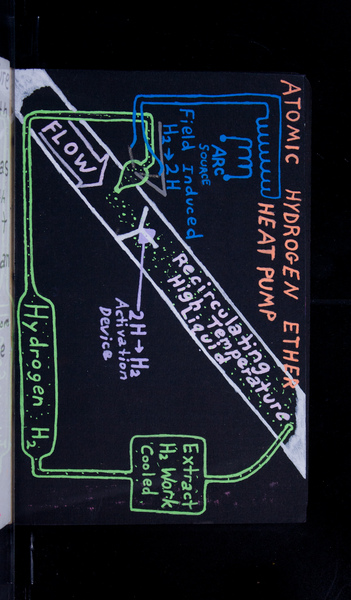 ATOMIC HYDROGEN ETHER
HEAT PUMP
ARC
SOURCE
Field Induced
H₂→2H
FLOW
Recirculating
High Temperature
Liquid
2H→H₂
Activation
Device
Hydrogen H₂
Extract
H₂ Work
Cooled